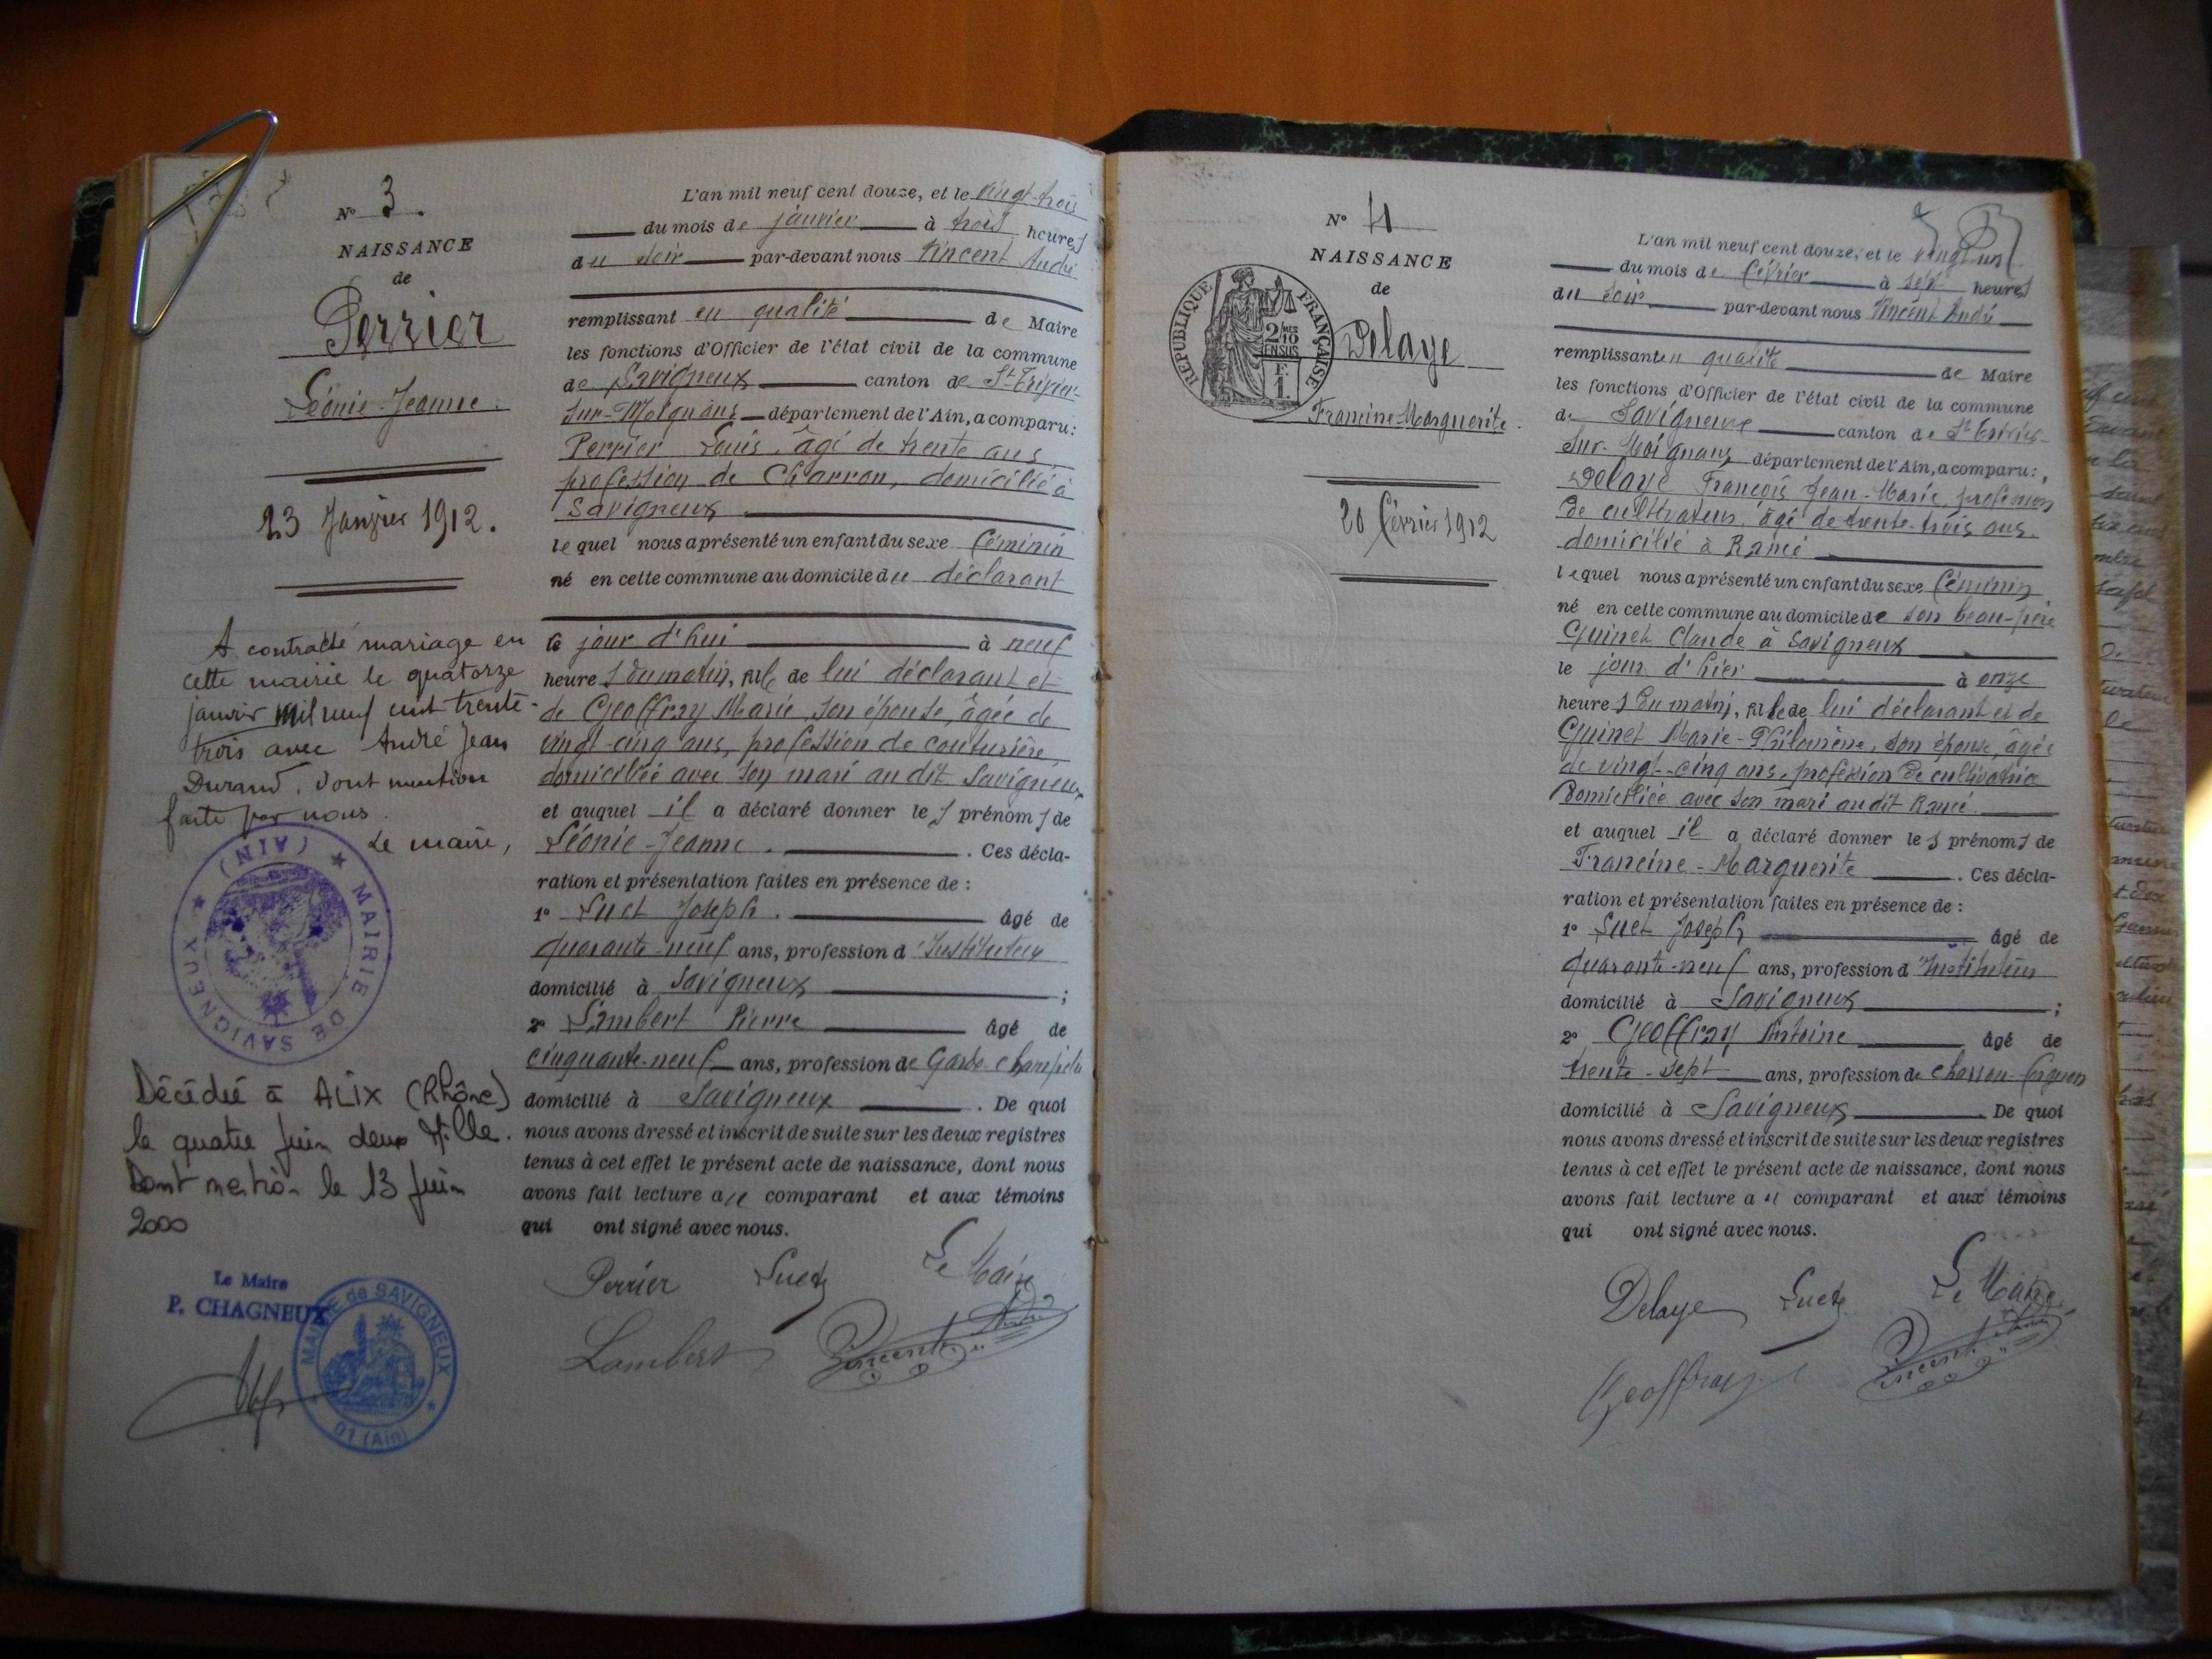 N° 3.
NAISSANCE
de
Perrier
Léonie-Jeanne.
23 Janvier 1912.
A contracté mariage en
cette mairie le quatorze
janvier mil neuf cent trente-
trois avec André Jean
Durand. Dont mention
faite par nous.
Le maire,
MAIRIE DE SAVIGNEUX (AIN)
Décédée à ALIX (Rhône)
le quatre juin deux Mille.
Dont mention le 13 juin
2000
Le Maire
P. CHAGNEUX
MAIRIE de SAVIGNEUX
01 (Ain)
L'an mil neuf cent douze, et le vingt-trois
du mois de janvier à trois heures
du soir par-devant nous Vincent André
remplissant en qualité de Maire
les fonctions d'Officier de l'état civil de la commune
de Savigneux canton de St-Trivier-
sur-Moignans département de l'Ain, a comparu:
Perrier Louis, âgé de trente ans,
profession de Charron, domicilié à
Savigneux
lequel nous a présenté un enfant du sexe féminin
né en cette commune au domicile du déclarant
le jour d'hui à neuf
heures du matin, fille de lui déclarant et
de Geoffray Marie, son épouse, âgée de
vingt-cinq ans, profession de couturière,
domiciliée avec son mari au dit Savigneux
et auquel il a déclaré donner les prénoms de
Léonie-Jeanne. Ces décla-
ration et présentation faites en présence de :
1° Suet Joseph. âgé de
quarante-neuf ans, profession d'Instituteur
domicilié à Savigneux ;
2° Lambert Pierre âgé de
cinquante-neuf ans, profession de Garde-champêtre
domicilié à Savigneux . De quoi
nous avons dressé et inscrit de suite sur les deux registres
tenus à cet effet le présent acte de naissance, dont nous
avons fait lecture au comparant et aux témoins
qui ont signé avec nous.
Perrier Suet Le Maire
Lambert Vincent André
N° 4
NAISSANCE
de
RÉPUBLIQUE FRANÇAISE
2/10
EN SUS
Delaye
Francine-Marguerite.
20 février 1912
L'an mil neuf cent douze, et le vingt-un
du mois de février à sept heures
du soir par-devant nous Vincent André
remplissant en qualité de Maire
les fonctions d'Officier de l'état civil de la commune
de Savigneux canton de St-Trivier-
sur-Moignans département de l'Ain, a comparu:
Delaye François Jean-Marie, profession
de cultivateur, âgé de trente-trois ans,
domicilié à Rancé
lequel nous a présenté un enfant du sexe féminin
né en cette commune au domicile de son beau-père
Guinet Claude à Savigneux
le jour d'hier à onze
heures du matin, fille de lui déclarant et de
Guinet Marie-Philomène, son épouse, âgée
de vingt-cinq ans, profession de cultivatrice
domiciliée avec son mari au dit Rancé
et auquel il a déclaré donner les prénoms de
Francine-Marguerite . Ces décla-
ration et présentation faites en présence de :
1° Suet Joseph âgé de
quarante-neuf ans, profession d'Instituteur
domicilié à Savigneux ;
2° Geoffray Antoine âgé de
trente-sept ans, profession de charron-forgeron
domicilié à Savigneux De quoi
nous avons dressé et inscrit de suite sur les deux registres
tenus à cet effet le présent acte de naissance, dont nous
avons fait lecture au comparant et aux témoins
qui ont signé avec nous.
Delaye Suet Le Maire
Geoffray Vincent André